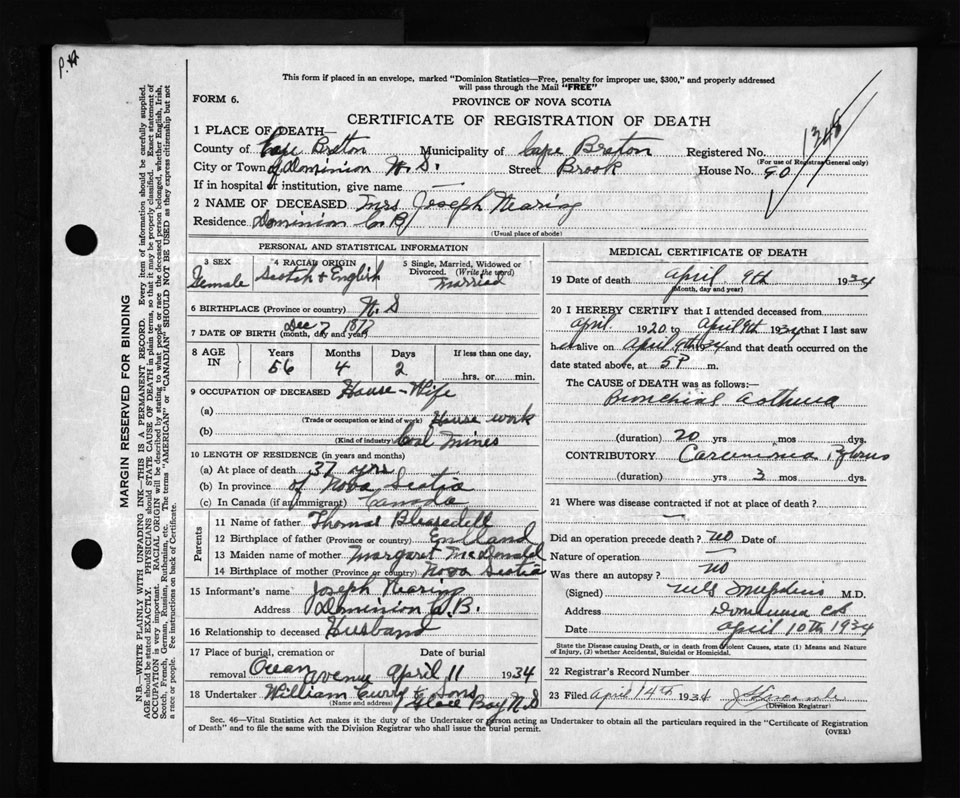 P.H
This form if placed in an envelope, marked "Dominion Statistics—Free, penalty for improper use, $300," and properly addressed
will pass through the Mail "FREE"
FORM 6.
PROVINCE OF NOVA SCOTIA
CERTIFICATE OF REGISTRATION OF DEATH
1 PLACE OF DEATH—
County of Cape Breton Municipality of Cape Breton Registered No.
(For use of Registrar General only)
City or Town of Dominion N.S. Street Brook House No. 90
If in hospital or institution, give name —
2 NAME OF DECEASED Mrs Joseph Nearing
Residence Dominion C.B
(Usual place of abode)
PERSONAL AND STATISTICAL INFORMATION
3 SEX Female
4 RACIAL ORIGIN Scotch & English
5 Single, Married, Widowed or Divorced. (Write the word) Married
6 BIRTHPLACE (Province or country) N.S
7 DATE OF BIRTH (month, day and year) Dec 7 1877
8 AGE IN Years 56 Months 4 Days 2 If less than one day, hrs. or min.
9 OCCUPATION OF DECEASED House-Wife
(a) (Trade or occupation or kind of work) House work
(b) (Kind of industry) Coal Mines
10 LENGTH OF RESIDENCE (in years and months)
(a) At place of death 37 yrs
(b) In province of Nova Scotia
(c) In Canada (if an immigrant) Canada
Parents
11 Name of father Thomas Bleasdell
12 Birthplace of father (Province or country) England
13 Maiden name of mother Margaret McDonald
14 Birthplace of mother (Province or country) Nova Scotia
15 Informant's name Joseph Nearing
Address Dominion C.B.
16 Relationship to deceased Husband
17 Place of burial, cremation or removal Ocean avenue Date of burial April 11 1934
18 Undertaker William Curry & Sons
(Name and address) Glace Bay N.S
MEDICAL CERTIFICATE OF DEATH
19 Date of death April 9th 1934
(Month, day and year)
20 I HEREBY CERTIFY that I attended deceased from
April 1920 to April 9th 1934 that I last saw
her alive on April 9th 34 and that death occurred on the
date stated above, at 5 P m.
The CAUSE of DEATH was as follows:
Bronchial Asthma
(duration) 20 yrs mos dys.
CONTRIBUTORY Carcinoma
(duration) 3 yrs mos dys.
21 Where was disease contracted if not at place of death?
—
Did an operation precede death? no Date of
Nature of operation —
Was there an autopsy? no
(Signed) M.D.
Address Dominion CB
Date April 10th 1934
State the Disease causing Death, or in death from Violent Causes, state (1) Means and Nature of Injury, (2) whether Accidental, Suicidal or Homicidal.
22 Registrar's Record Number
23 Filed April 14th 1934
(Division Registrar)
Sec. 46—Vital Statistics Act makes it the duty of the Undertaker or person acting as Undertaker to obtain all the particulars required in the "Certificate of Registration
of Death" and to file the same with the Division Registrar who shall issue the burial permit.
(OVER)
MARGIN RESERVED FOR BINDING
N.B.—WRITE PLAINLY WITH UNFADING INK—THIS IS A PERMANENT RECORD. Every item of information should be carefully supplied.
AGE should be stated EXACTLY. PHYSICIANS should STATE CAUSE OF DEATH in plain terms, so that it may be properly classified. Exact statement of
OCCUPATION is very important. RACIAL ORIGIN will be described by stating to what people or race the deceased person belonged, whether English, Irish,
Scotch, French, German, Russian, Ruthenian, etc. The terms "AMERICAN" or "CANADIAN" SHOULD NOT BE USED as they express citizenship but not
a race or people. See instructions on back of Certificate.